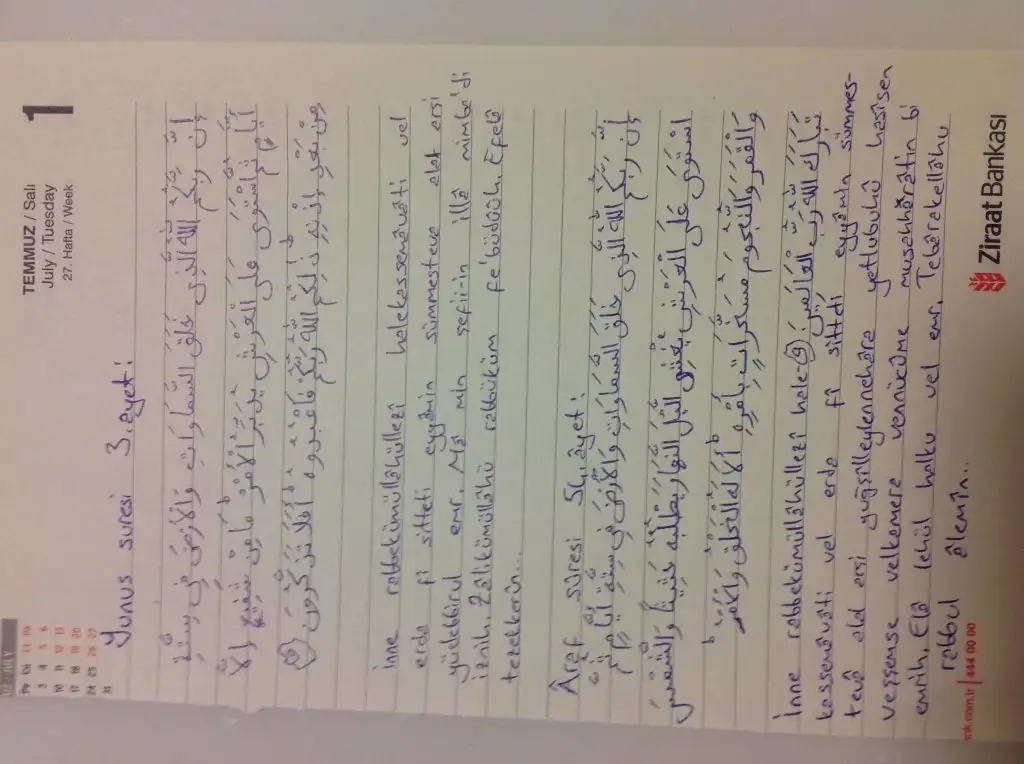 TEMMUZ / Salı
July / Tuesday
27. Hafta / Week
1
JULY
Pe Cu Ct Pz
3 4 5 6
10 11 12 13
17 18 19 20
24 25 26 27
31
Yunus suresi 3. ayet:
إِنَّ رَبَّكُمُ اللّٰهُ الَّذِي خَلَقَ السَّمٰوَاتِ وَالْاَرْضَ فِي سِتَّةِ
اَيَّامٍ ثُمَّ اسْتَوٰى عَلَى الْعَرْشِ يُدَبِّرُ الْاَمْرَ مَا مِنْ شَفِيعٍ اِلَّا
مِنْ بَعْدِ اِذْنِهِ ذٰلِكُمُ اللّٰهُ رَبُّكُمْ فَاعْبُدُوهُ اَفَلَا تَذَكَّرُونَ (3)
İnne rabbekümüllâhüllezî halekassemâvâti vel
erda fî sitteti eyyâmin sümmestevâ alel arşi
yüdebbirul emr. Mâ min şefîin illâ mimba'di
iznih. Zâlikümüllâhü rabbüküm fa'büdûüh. Efelâ
tezekkerûn...
Âraf sûresi 54. ayet:
إِنَّ رَبَّكُمُ اللّٰهُ الَّذِي خَلَقَ السَّمٰوَاتِ وَالْاَرْضَ فِي سِتَّةِ اَيَّامٍ ثُمَّ
اسْتَوٰى عَلَى الْعَرْشِ يُغْشِي الَّيْلَ النَّهَارَ يَطْلُبُهُ حَثِيثًا وَالشَّمْسَ
وَالْقَمَرَ وَالنُّجُومَ مُسَخَّرَاتٍ بِاَمْرِهِ اَلَا لَهُ الْخَلْقُ وَالْاَمْرُ
تَبَارَكَ اللّٰهُ رَبُّ الْعَالَمِينَ
İnne rabbekümüllâhüllezî hale-
kassemâvâti vel erda fî sitteti eyyâmin sümmes-
tevâ alel arşi yuğşilleylennehâra yetlubuhû hasîsen
veşşemse velkamera vennücûme musahharâtin bi
emrih. Elâ lehül halku vel emr. Tebârekellâhu
rabbul âlemîn...
444 00 00
Ziraat Bankası